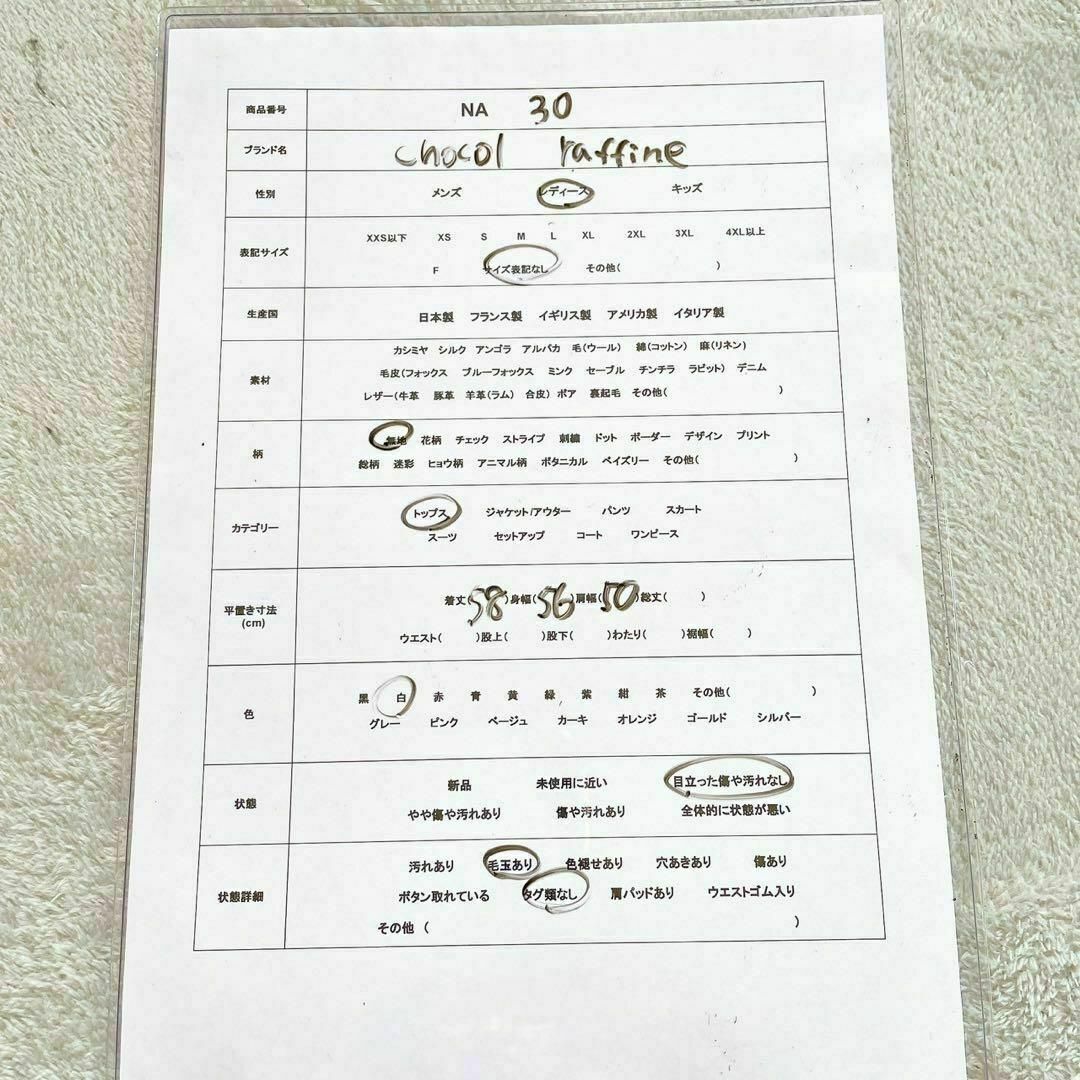 商品番号 NA 30
ブランド名 chocol raffine
性別 メンズ レディース キッズ
表記サイズ
XXS以下 XS S M L XL 2XL 3XL 4XL以上
F サイズ表記なし その他( )
生産国 日本製 フランス製 イギリス製 アメリカ製 イタリア製
素材
カシミヤ シルク アンゴラ アルパカ 毛(ウール) 綿(コットン) 麻(リネン)
毛皮(フォックス ブルーフォックス ミンク セーブル チンチラ ラビット) デニム
レザー(牛革 豚革 羊革(ラム) 合皮) ボア 裏起毛 その他( )
柄
無地 花柄 チェック ストライプ 刺繍 ドット ボーダー デザイン プリント
総柄 迷彩 ヒョウ柄 アニマル柄 ボタニカル ペイズリー その他( )
カテゴリー
トップス ジャケット/アウター パンツ スカート
スーツ セットアップ コート ワンピース
平置き寸法
(cm)
着丈(58)身幅(56)肩幅(50)総丈( )
ウエスト( )股上( )股下( )わたり( )裾幅( )
色
黒 白 赤 青 黄 緑 紫 紺 茶 その他( )
グレー ピンク ベージュ カーキ オレンジ ゴールド シルバー
状態
新品 未使用に近い 目立った傷や汚れなし
やや傷や汚れあり 傷や汚れあり 全体的に状態が悪い
状態詳細
汚れあり 毛玉あり 色褪せあり 穴あきあり 傷あり
ボタン取れている タグ類なし 肩パッドあり ウエストゴム入り
その他 ( )